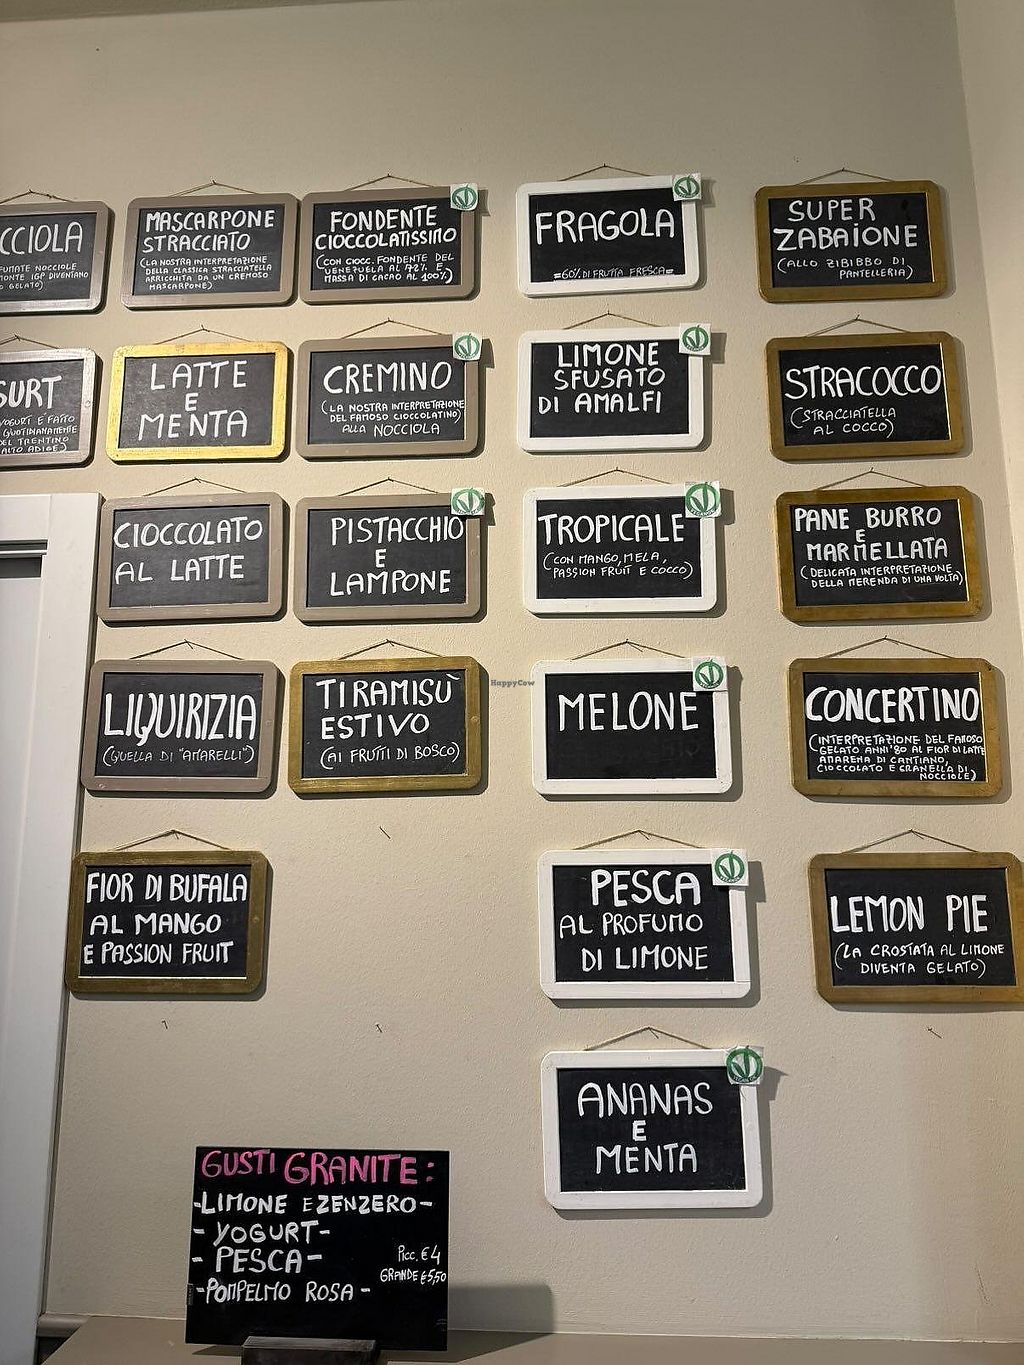 CCIOLA
FUMATE NOCCIOLE
MONTE IGP DIVENTANO
O GELATO)
MASCARPONE
STRACCIATO
(LA NOSTRA INTERPRETAZIONE
DELLA CLASSICA STRACCIATELLA
ARRICCHITA DA UN CREMOSO
MASCARPONE)
FONDENTE
CIOCCOLATISSIMO
(CON CIOCC. FONDENTE DEL
VENEZUELA AL 72% E
MASSA DI CACAO AL 100%)
FRAGOLA
=60% DI FRUTTA FRESCA=
SUPER
ZABAIONE
(ALLO ZIBIBBO DI
PANTELLERIA)
GURT
YOGURT E' FATTO
QUOTIDIANAMENTE
DEL TRENTINO
ALTO ADIGE)
LATTE
E
MENTA
CREMINO
(LA NOSTRA INTERPRETAZIONE
DEL FAMOSO CIOCCOLATINO)
ALLA NOCCIOLA
LIMONE
SFUSATO
DI AMALFI
STRACOCCO
(STRACCIATELLA
AL COCCO)
CIOCCOLATO
AL LATTE
PISTACCHIO
E
LAMPONE
TROPICALE
(CON MANGO, MELA,
PASSION FRUIT E COCCO)
PANE BURRO
E
MARMELLATA
(DELICATA INTERPRETAZIONE
DELLA MERENDA DI UNA VOLTA)
LIQUIRIZIA
(QUELLA DI "AMARELLI")
TIRAMISÙ
ESTIVO
(AI FRUTTI DI BOSCO)
HappyCow
MELONE
CONCERTINO
(INTERPRETAZIONE DEL FAMOSO
GELATO ANNI '80 AL FIOR DI LATTE
AMARENA DI CANTIANO,
CIOCCOLATO E GRANELLA DI
NOCCIOLE)
FIOR DI BUFALA
AL MANGO
E PASSION FRUIT
PESCA
AL PROFUMO
DI LIMONE
LEMON PIE
(LA CROSTATA AL LIMONE
DIVENTA GELATO)
ANANAS
E
MENTA
GUSTI GRANITE:
-LIMONE E ZENZERO-
- YOGURT-
- PESCA-
-POMPELMO ROSA -
Picc. €4
GRANDE €5,50